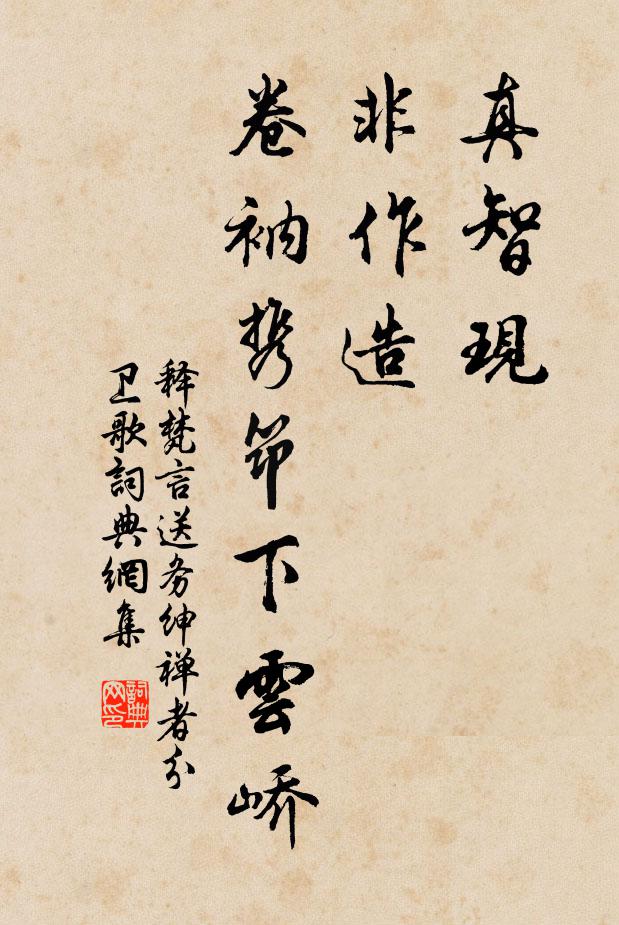 真智現
非作造
卷衲携笻下雲嶠
释梵言送务绅禅者分
卫歌詞典網集
詞典
网印